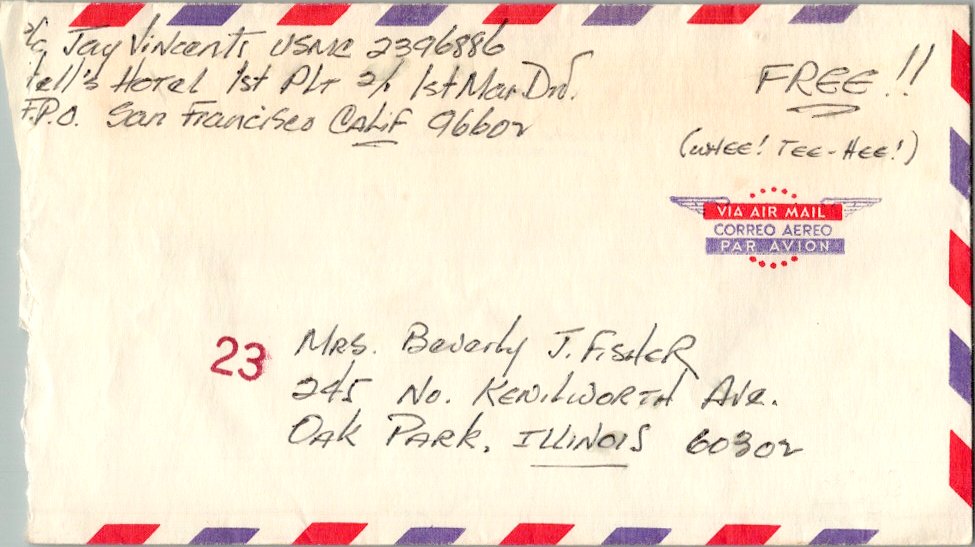 L/C Jay Vincent USMC 2396886
Hell's Hotel 1st PLT 2/1 1st Mar Div.
F.P.O. San Francisco CALIF 96602
FREE!!
(WHEE! TEE-HEE!)
VIA AIR MAIL
CORREO AEREO
PAR AVION
23
MRS. Beverly J. FISHER
245 No. KENILWORTH Ave.
OAK PARK, ILLINOIS 60302